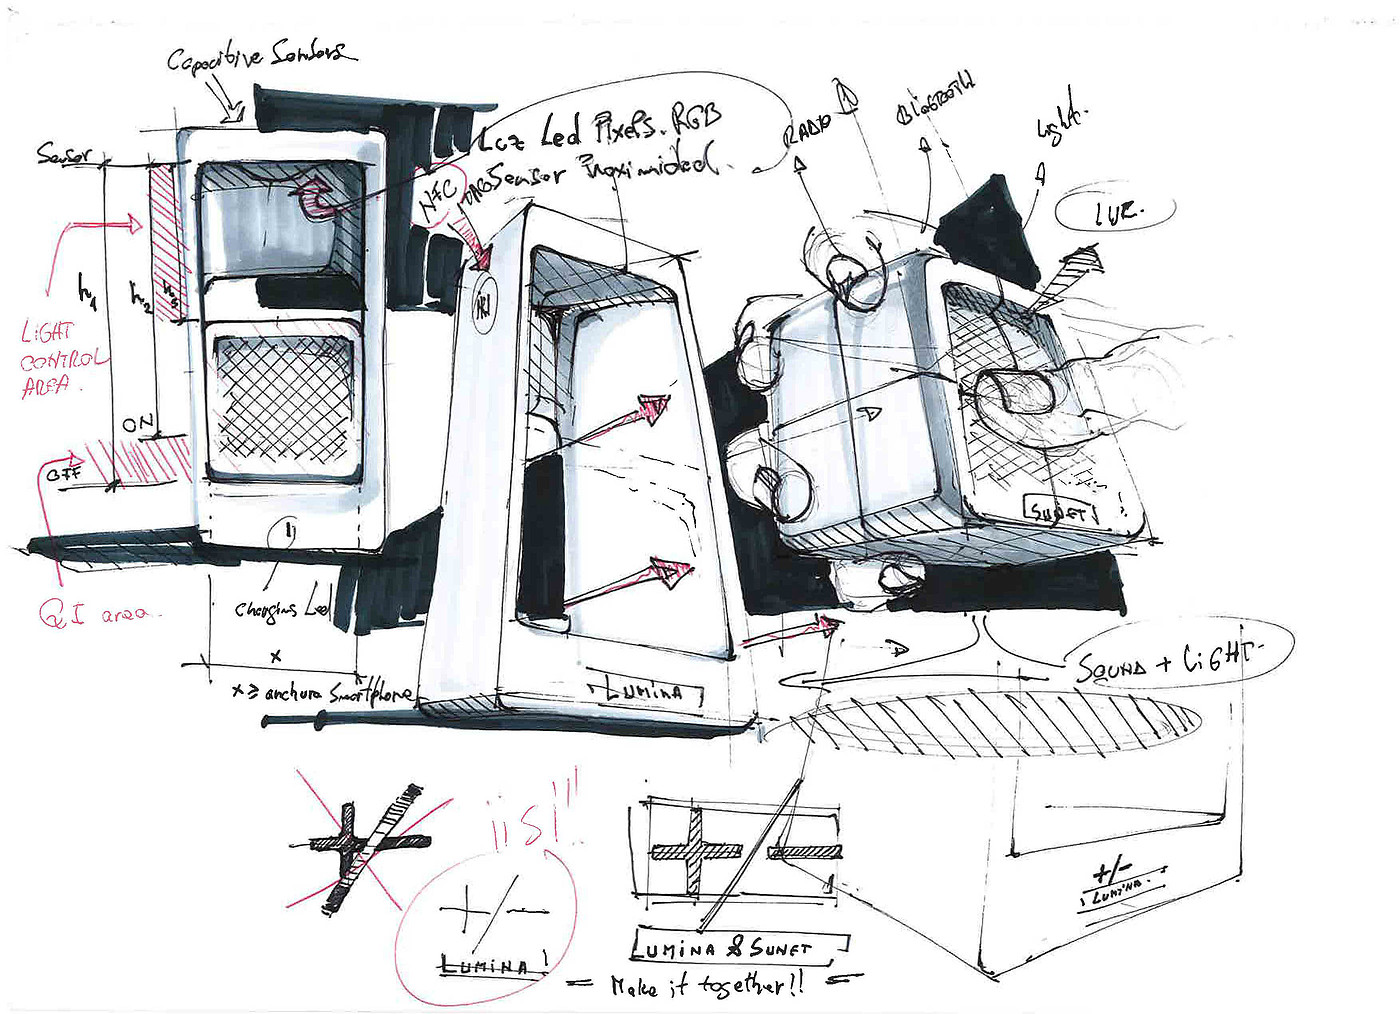 Capacitive Sensors
Sensor
Luz Led Pixels. RGB
Sensor Proximidad.
NFC
RADIO
BLUETOOTH
Light.
LUZ.
h1
h2
h3
LIGHT
CONTROL
AREA.
ON
OFF
QI area.
Charging Led
x
x ≥ anchura Smartphone
LUMINA
SUNET
SOUND + LIGHT
¡¡SI!!!
+/-
LUMINA
+/-
LUMINA
+ / -
LUMINA & SUNET
= Make it together!! =